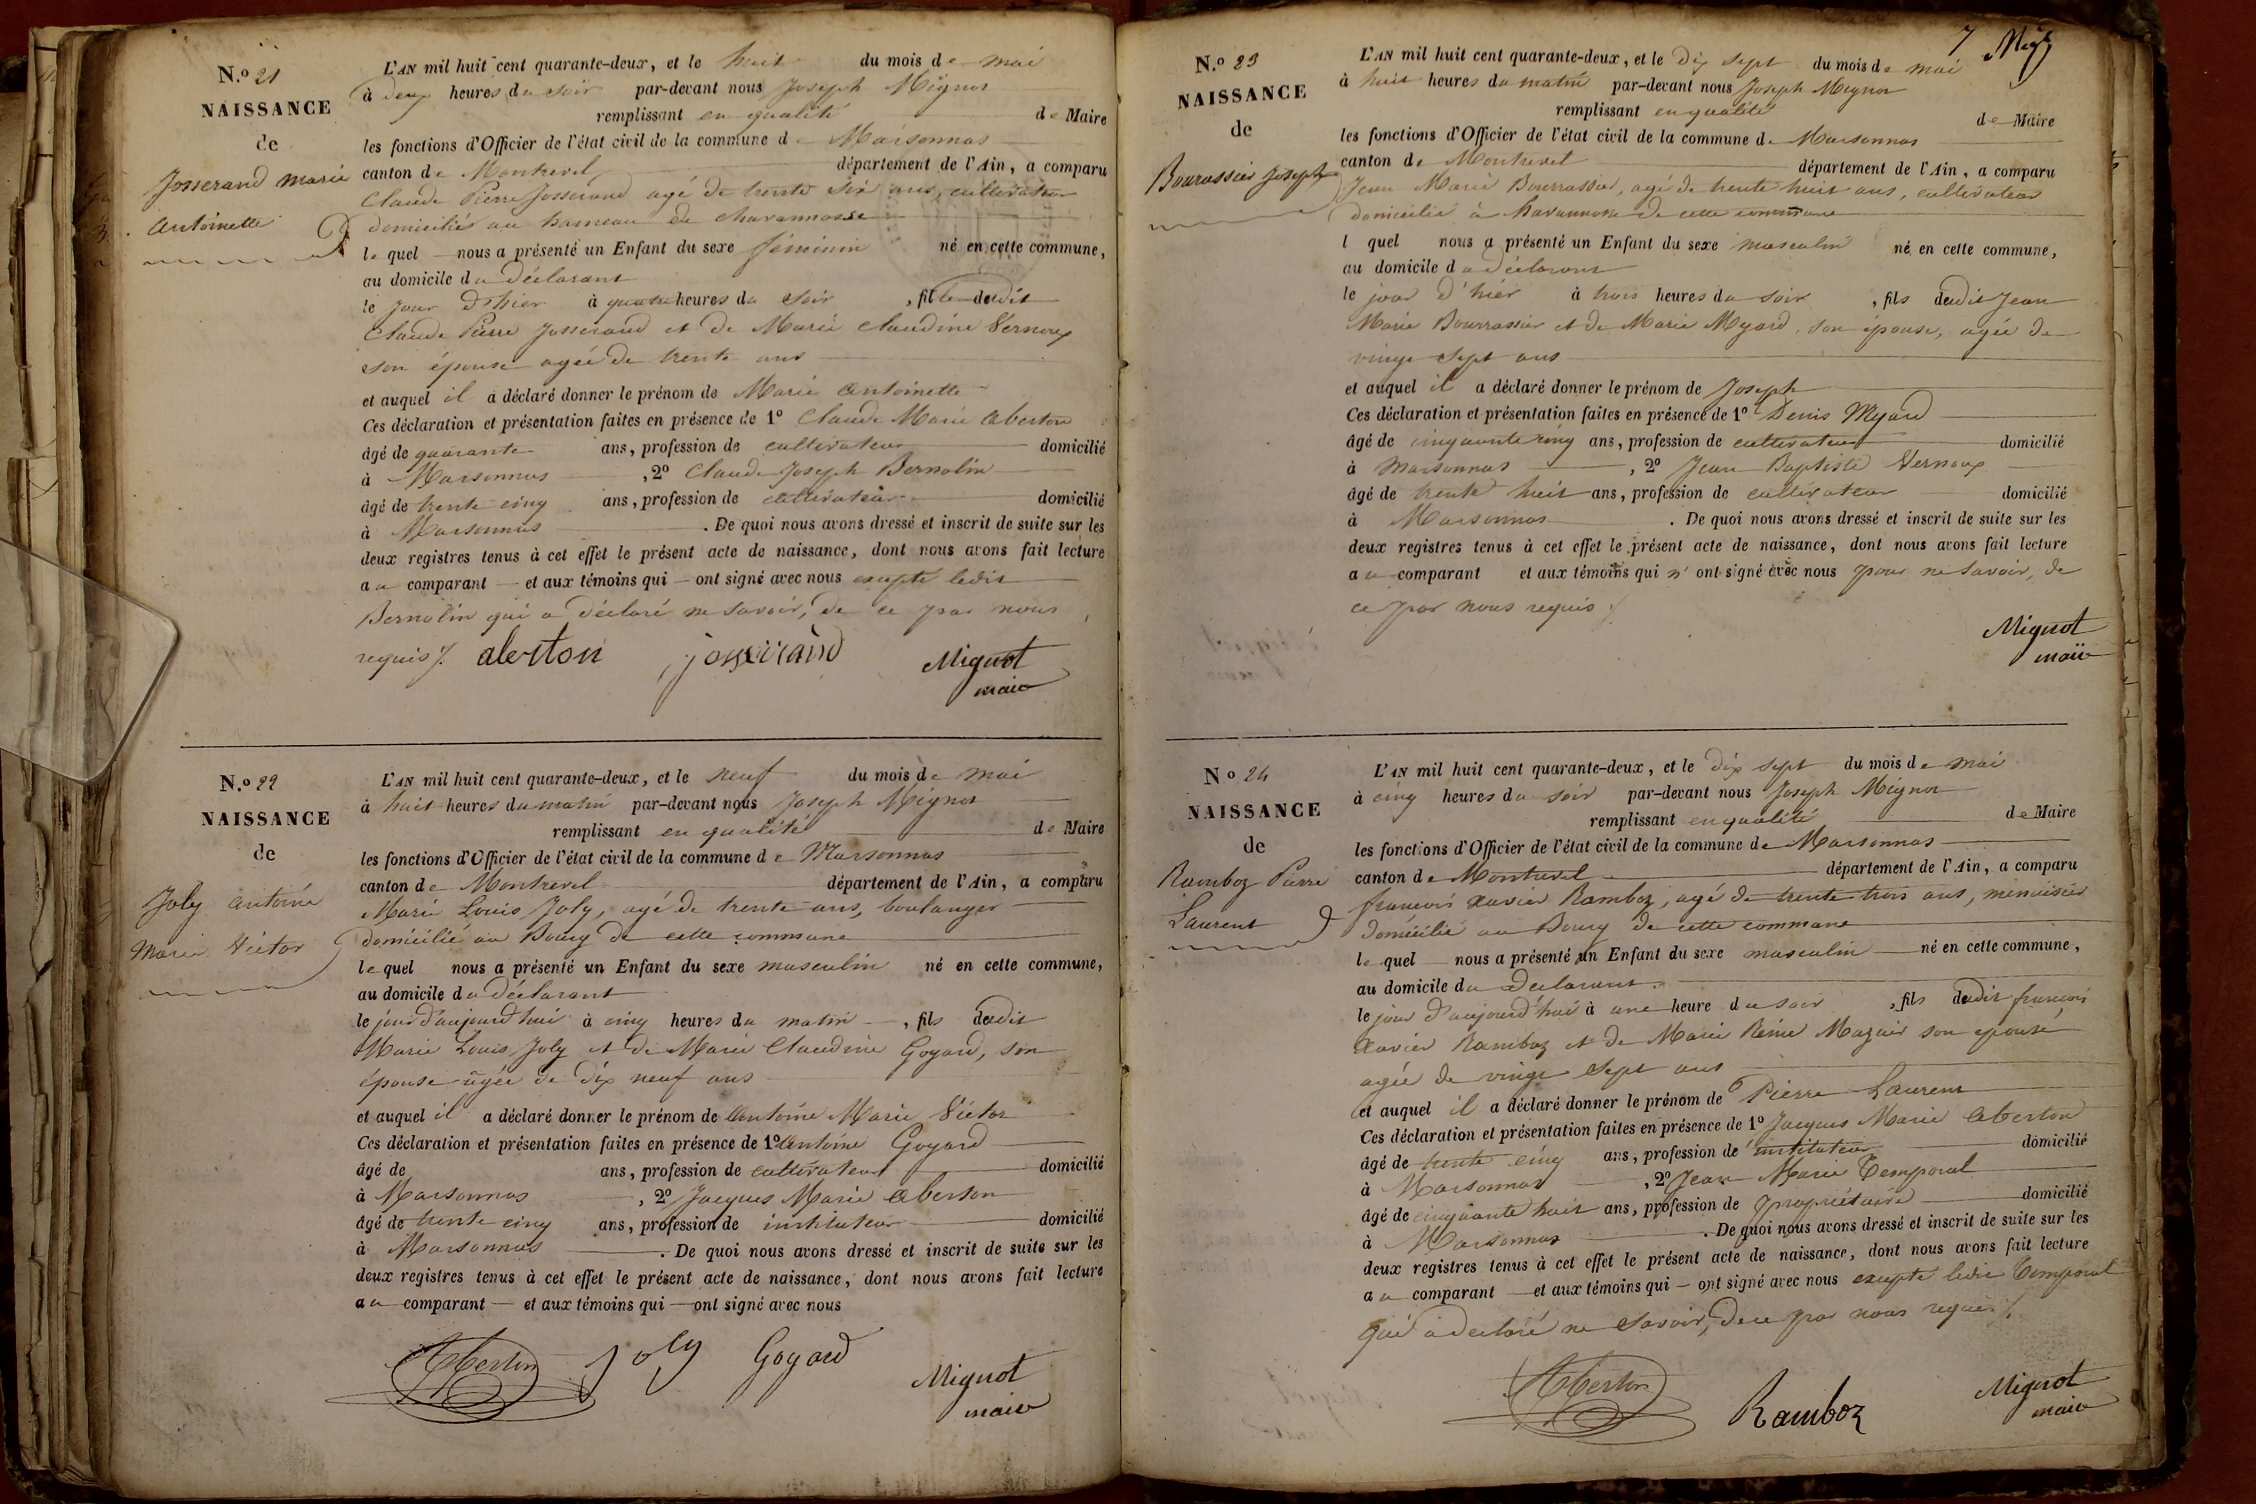 N.o 21
NAISSANCE
de
Josserand marie
antoinette
L'AN mil huit cent quarante-deux, et le huit du mois de mai
à deux heures du soir par-devant nous Joseph Mignot
remplissant en qualité de Maire
les fonctions d'Officier de l'état civil de la commune de Marsonnas
canton de Montrevel département de l'Ain, a comparu
Claude Pierre Josserand agé de trente six ans, cultivateur
domicilié au hameau de chavannosse
le quel nous a présenté un Enfant du sexe féminin né en cette commune,
au domicile du déclarant
le jour d'hier à quatre heures du soir, fille dudit
Claude Pierre Josserand et de Marie claudine Vernoux
son épouse agée de trente ans
et auquel il a déclaré donner le prénom de Marie antoinette
Ces déclaration et présentation faites en présence de 1o Claude Marie Aberton
âgé de quarante ans, profession de cultivateur domicilié
à Marsonnas, 2o Claude Joseph Bernolin
âgé de trente cinq ans, profession de cultivateur domicilié
à Marsonnas. De quoi nous avons dressé et inscrit de suite sur les
deux registres tenus à cet effet le présent acte de naissance, dont nous avons fait lecture
au comparant et aux témoins qui ont signé avec nous excepté ledit
Bernolin qui a déclaré ne savoir, de ce par nous
requis /. aberton josserand Mignot
maire
N.o 22
NAISSANCE
de
Joly antoine
Marie Victor
L'AN mil huit cent quarante-deux, et le neuf du mois de mai
à huit heures du matin par-devant nous Joseph Mignot
remplissant en qualité de Maire
les fonctions d'Officier de l'état civil de la commune de Marsonnas
canton de Montrevel département de l'Ain, a comparu
Marie Louis Joly, agé de trente ans, boulanger
domicilié au Bourg de cette commune
le quel nous a présenté un Enfant du sexe masculin né en cette commune,
au domicile du déclarant
le jour d'aujourd'hui à cinq heures du matin, fils dudit
Marie Louis Joly et de Marie Claudine Goyard, son
épouse agée de dix neuf ans
et auquel il a déclaré donner le prénom de antoine Marie Victor
Ces déclaration et présentation faites en présence de 1o antoine Goyard
âgé de ans, profession de cultivateur domicilié
à Marsonnas, 2o Jacques Marie Aberton
âgé de trente cinq ans, profession de instituteur domicilié
à Marsonnas. De quoi nous avons dressé et inscrit de suite sur les
deux registres tenus à cet effet le présent acte de naissance, dont nous avons fait lecture
au comparant et aux témoins qui ont signé avec nous
Aberton joly Goyard Mignot
maire
7
N.o 23
NAISSANCE
de
Bourassier Joseph
L'AN mil huit cent quarante-deux, et le dix sept du mois de mai
à huit heures du matin par-devant nous Joseph Mignot
remplissant en qualité de Maire
les fonctions d'Officier de l'état civil de la commune de Marsonnas
canton de Montrevel département de l'Ain, a comparu
Jean Marie Bourrassier, agé de trente huit ans, cultivateur
domicilié à havannosse de cette commune
l quel nous a présenté un Enfant du sexe masculin né en cette commune,
au domicile du déclarant
le jour d'hier à trois heures du soir, fils dudit Jean
Marie Bourrassier et de Marie Myard, son épouse, agée de
vingt sept ans
et auquel il a déclaré donner le prénom de Joseph
Ces déclaration et présentation faites en présence de 1o Denis Myard
âgé de cinquante cinq ans, profession de cultivateur domicilié
à Marsonnas, 2o Jean Baptiste Vernoux
âgé de trente huit ans, profession de cultivateur domicilié
à Marsonnas. De quoi nous avons dressé et inscrit de suite sur les
deux registres tenus à cet effet le présent acte de naissance, dont nous avons fait lecture
au comparant et aux témoins qui n' ont signé avec nous pour ne savoir, de
ce par nous requis /.
Mignot
maire
No 24
NAISSANCE
de
Ramboz Pierre
Laurent
L'AN mil huit cent quarante-deux, et le dix sept du mois de mai
à cinq heures du soir par-devant nous Joseph Mignot
remplissant en qualité de Maire
les fonctions d'Officier de l'état civil de la commune de Marsonnas
canton de Montrevel département de l'Ain, a comparu
françois Xavier Ramboz, agé de trente trois ans, menuisier
domicilié au Bourg de cette commune
le quel nous a présenté un Enfant du sexe masculin né en cette commune,
au domicile du déclarant
le jour d'aujourd'hui à une heure du soir, fils dudit françois
Xavier Ramboz et de Marie Reine Mazuir son epouse,
agée de vingt sept ans
et auquel il a déclaré donner le prénom de Pierre Laurent
Ces déclaration et présentation faites en présence de 1o Jacques Marie Aberton
âgé de trente cinq ans, profession de instituteur domicilié
à Marsonnas, 2o Jean Marie Temporal
âgé de cinquante huit ans, profession de propriétaire domicilié
à Marsonnas. De quoi nous avons dressé et inscrit de suite sur les
deux registres tenus à cet effet le présent acte de naissance, dont nous avons fait lecture
au comparant et aux témoins qui ont signé avec nous excepté ledit Temporal
qui a déclaré ne savoir, de ce par nous requis /.
Aberton Ramboz Mignot
maire